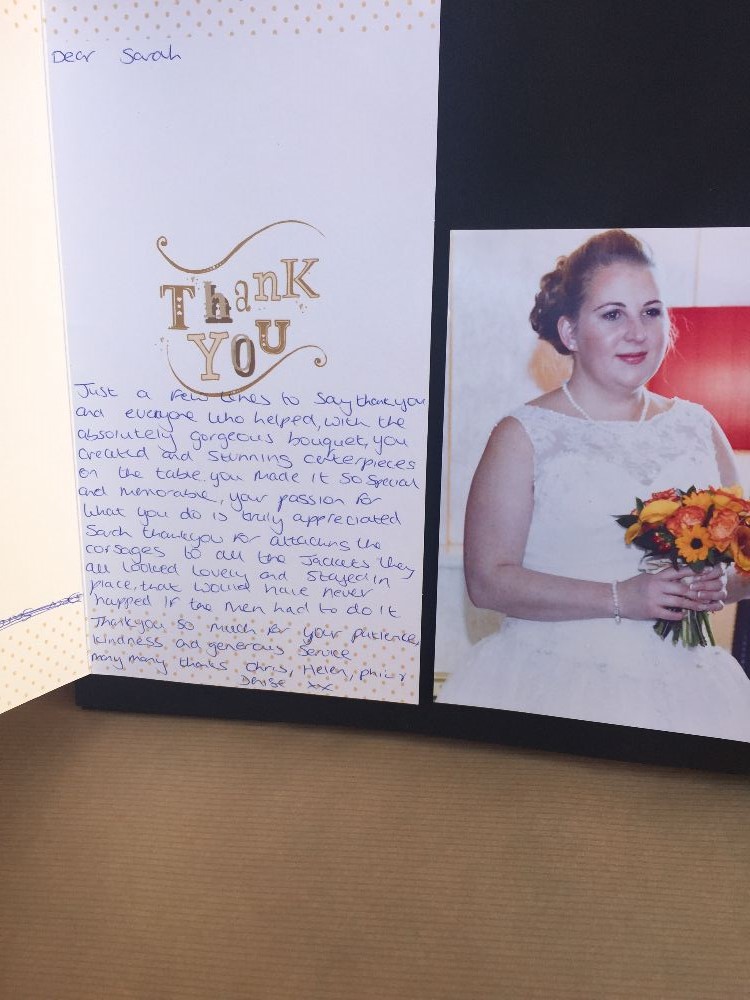 Dear Sarah
Thank
You
Just a few lines to say thankyou
and everyone who helped, with the
absolutely gorgeous bouquet, you
created and stunning centerpieces
on the table. you made it so special
and memorable, your passion for
what you do is truly appreciated
Sarah thankyou for attaching the
corsages to all the Jackets they
all looked lovely and stayed in
place, that would have never
happed if the men had to do it
Thankyou so much for your patience,
kindness and generous service
many many thanks Chris, Helen, Philip
Denise xx